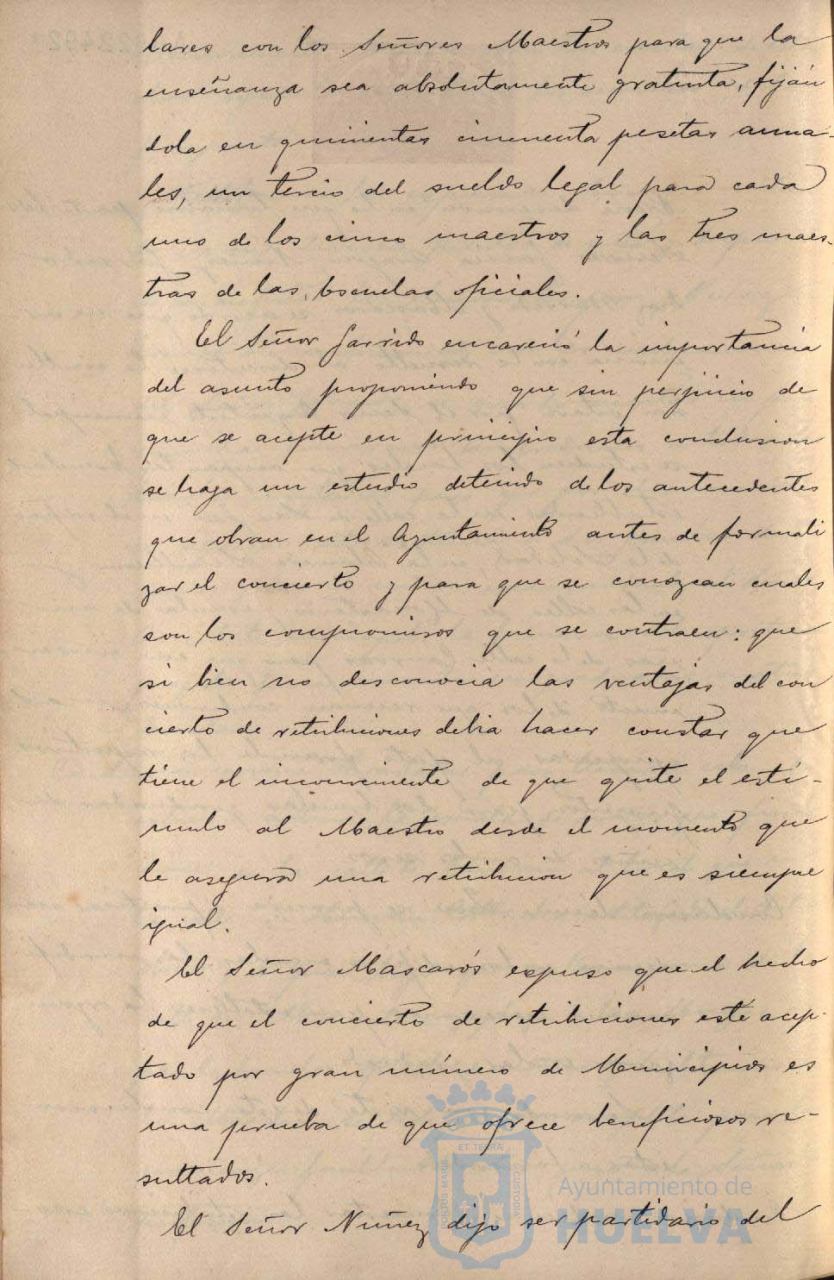 lares con los Señores Maestros para que la
enseñanza sea absolutamente gratuita, fiján
dola en quinientas cincuenta pesetas anua-
les, un tercio del sueldo legal para cada
uno de los cinco maestros y las tres maes-
tras de las Escuelas oficiales.
El Señor Garrido encareció la importancia
del asunto proponiendo que sin perjuicio de
que se acepte en principio esta conclusion
se haga un estudio detenido de los antecedentes
que obran en el Ayuntamiento antes de formali
zar el concierto y para que se conozcan cuales
son los compromisos que se contraen: que
si bien no desconocia las ventajas del con
cierto de retribuciones debia hacer constar que
tiene el inconveniente de que quite el estí-
mulo al Maestro desde el momento que
le asegura una retribucion que es siempre
igual.
El Señor Mascarós expuso que el hecho
de que el concierto de retribuciones esté acep-
tado por gran número de Municipios es
una prueba de que ofrece beneficiosos re-
sultados.
El Señor Nuñez dijo ser partidario del
Ayuntamiento de
HUELVA